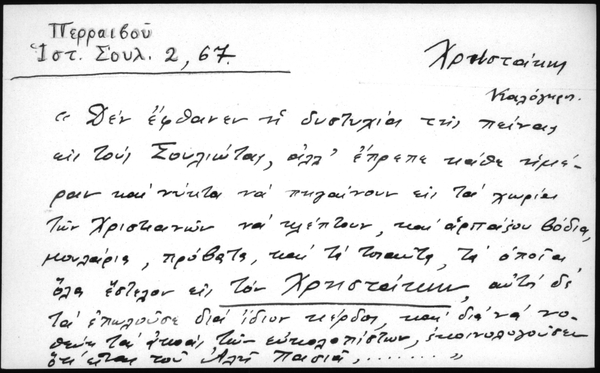 Περραιβοῦ
Ἱστ. Σουλ. 2, 67.
Χρηστάκης
Καλόγηρ.
« Δέν ἔφθανεν ἡ δυστυχία τῆς πείνας
εἰς τούς Σουλιώτας, ἀλλ' ἔπρεπε κάθε ἡμέ-
ραν καί νύκτα νά πηγαίνουν εἰς τά χωρία
τῶν Χριστιανῶν νά κλέπτουν, καί ἁρπάζουν βόδια,
μουλάρια, πρόβατα, καί τά τοιαῦτα, τά ὁποῖα
ὅλα ἔστελον εἰς τόν Χρηστάκην, αὐτός δέ
τά ἐπωλοῦσε διά ἴδιον κέρδος, καί διά νά νο-
θεύῃ τά ἀκοάς τῶν εὐκολοπίστων, ἐκοινολογοῦσεν
ὅτι εἶναι τοῦ Ἀλῆ Πασιᾶ, ....... »